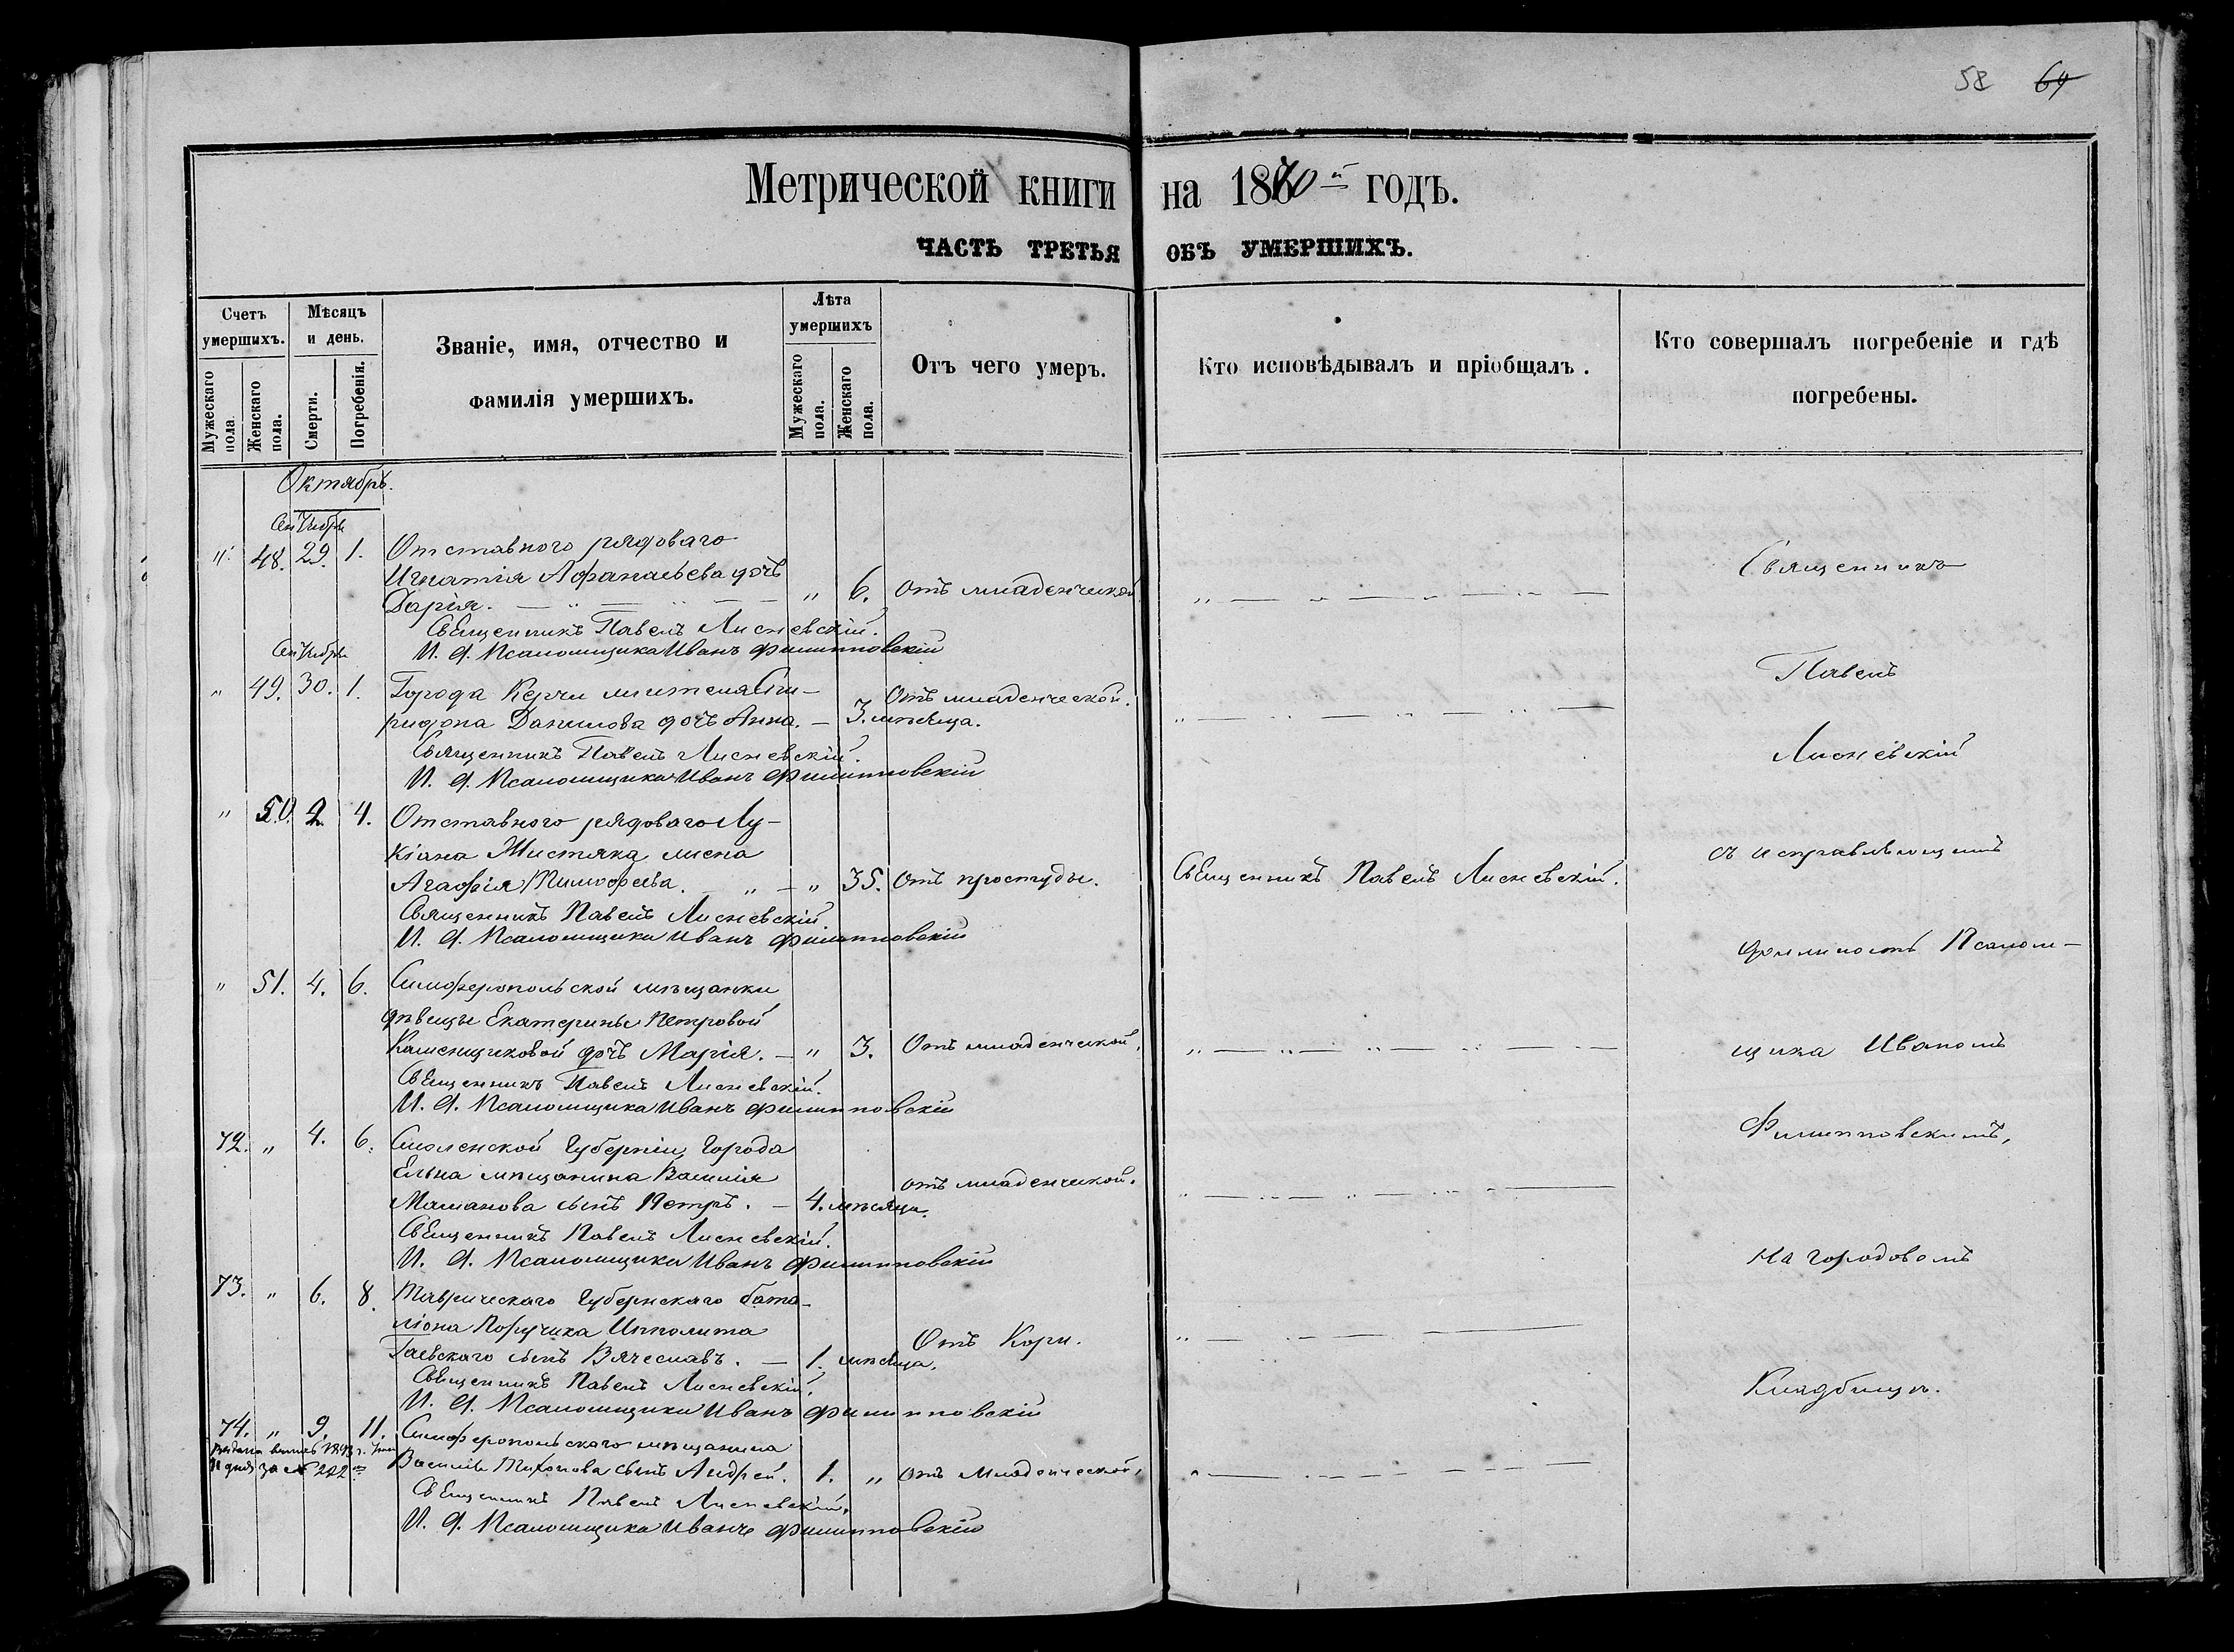 58 64
Метрической книги на 1870й годъ.
ЧАСТЬ ТРЕТЬЯ ОБЪ УМЕРШИХЪ.
Счетъ умершихъ.
Мужескаго пола
Женскаго пола.
Мѣсяцъ и день.
Смерти.
Погребенія.
Званіе, имя, отчество и
фамилія умершихъ.
Лѣта умершихъ
Мужескаго пола.
Женскаго пола.
Отъ чего умеръ.
Кто исповѣдывалъ и пріобщалъ.
Кто совершалъ погребеніе и гдѣ
погребены.
Октябрь.
Сентября
" 48. 29. 1. Отставного рядоваго
Игнатія Афанасьева дочь
Дарія. " 6. Отъ младенческой
Священникъ Павелъ Лисневскій.
И. д. Псаломщика Иванъ Филипповскій
Сентября
" 49. 30. 1. Города Керчи жителя Спи-
ридона Данилова дочь Анна. — 3. мѣсяца. Отъ младенческой.
Священникъ Павелъ Лисневскій.
И. д. Псаломщика Иванъ Филипповскій
" 50. 2. 4. Отставного рядоваго Лу-
кіана Жистяка жена
Агафія Тимофеева. — " — " 35. Отъ простуды. Священникъ Павелъ Лисневскій.
Священникъ Павелъ Лисневскій.
И. д. Псаломщика Иванъ Филипповскій
" 51. 4. 6. Симферопольской мѣщанки
дѣвицы Екатерины Петровой
Каменщиковой дочь Марія. — " 3. Отъ младенческой.
Священникъ Павелъ Лисневскій.
И. д. Псаломщика Иванъ Филипповскій
72. " 4. 6. Смоленской Губерніи, Города
Ельна мѣщанина Василія
Машанова сынъ Петръ. — 4. мѣсяца. отъ младенческой.
Священникъ Павелъ Лисневскій.
И. д. Псаломщика Иванъ Филипповскій
73. " 6. 8. Таврическаго Губернскаго бата-
ліона Поручика Ипполита
Гаевскаго сынъ Вячеславъ. — 1. мѣсяца. Отъ Кори.
Священникъ Павелъ Лисневскій.
И. д. Псаломщика Иванъ Филипповскій
74. " 9. 11. Симферопольскаго мѣщанина
Василія Тихонова сынъ Андрей. 1. " отъ младенческой.
за № 222
Священникъ Павелъ Лисневскій.
И. д. Псаломщика Иванъ Филипповскій
Священникъ
Павелъ
Лисневскій
съ исправляющимъ
должность Псалом-
щика Иваномъ
Филипповскимъ,
на городовомъ
Кладбищѣ.